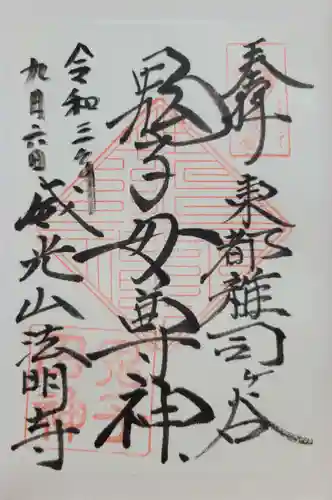 奉拝
東都雑司ヶ谷
鬼子母尊神
威光山法明寺
令和三年
九月六日